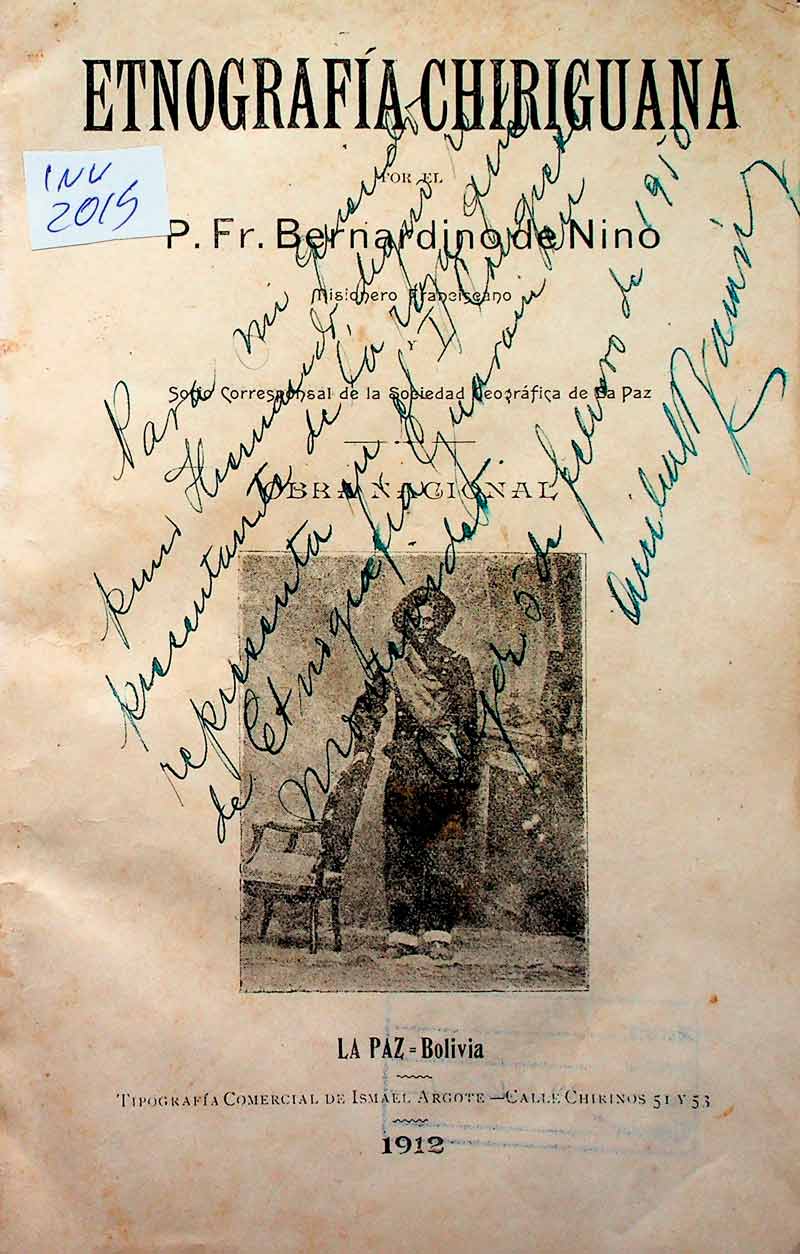 ETNOGRAFÍA CHIRIGUANA
INV
2015
POR EL
P. Fr. Bernardino de Nino
Misionero Franciscano
Y
Socio Corresponsal de la Sociedad Geográfica de La Paz
OBRA NACIONAL
Para mi querido
Hernando, digno
de la raza que
representa en el
de Etnografía Guaraní por
5 de febrero de 1950
LA PAZ = Bolivia
TIPOGRAFÍA COMERCIAL DE ISMAEL ARGOTE — CALLE CHIRINOS 51 Y 53
1912